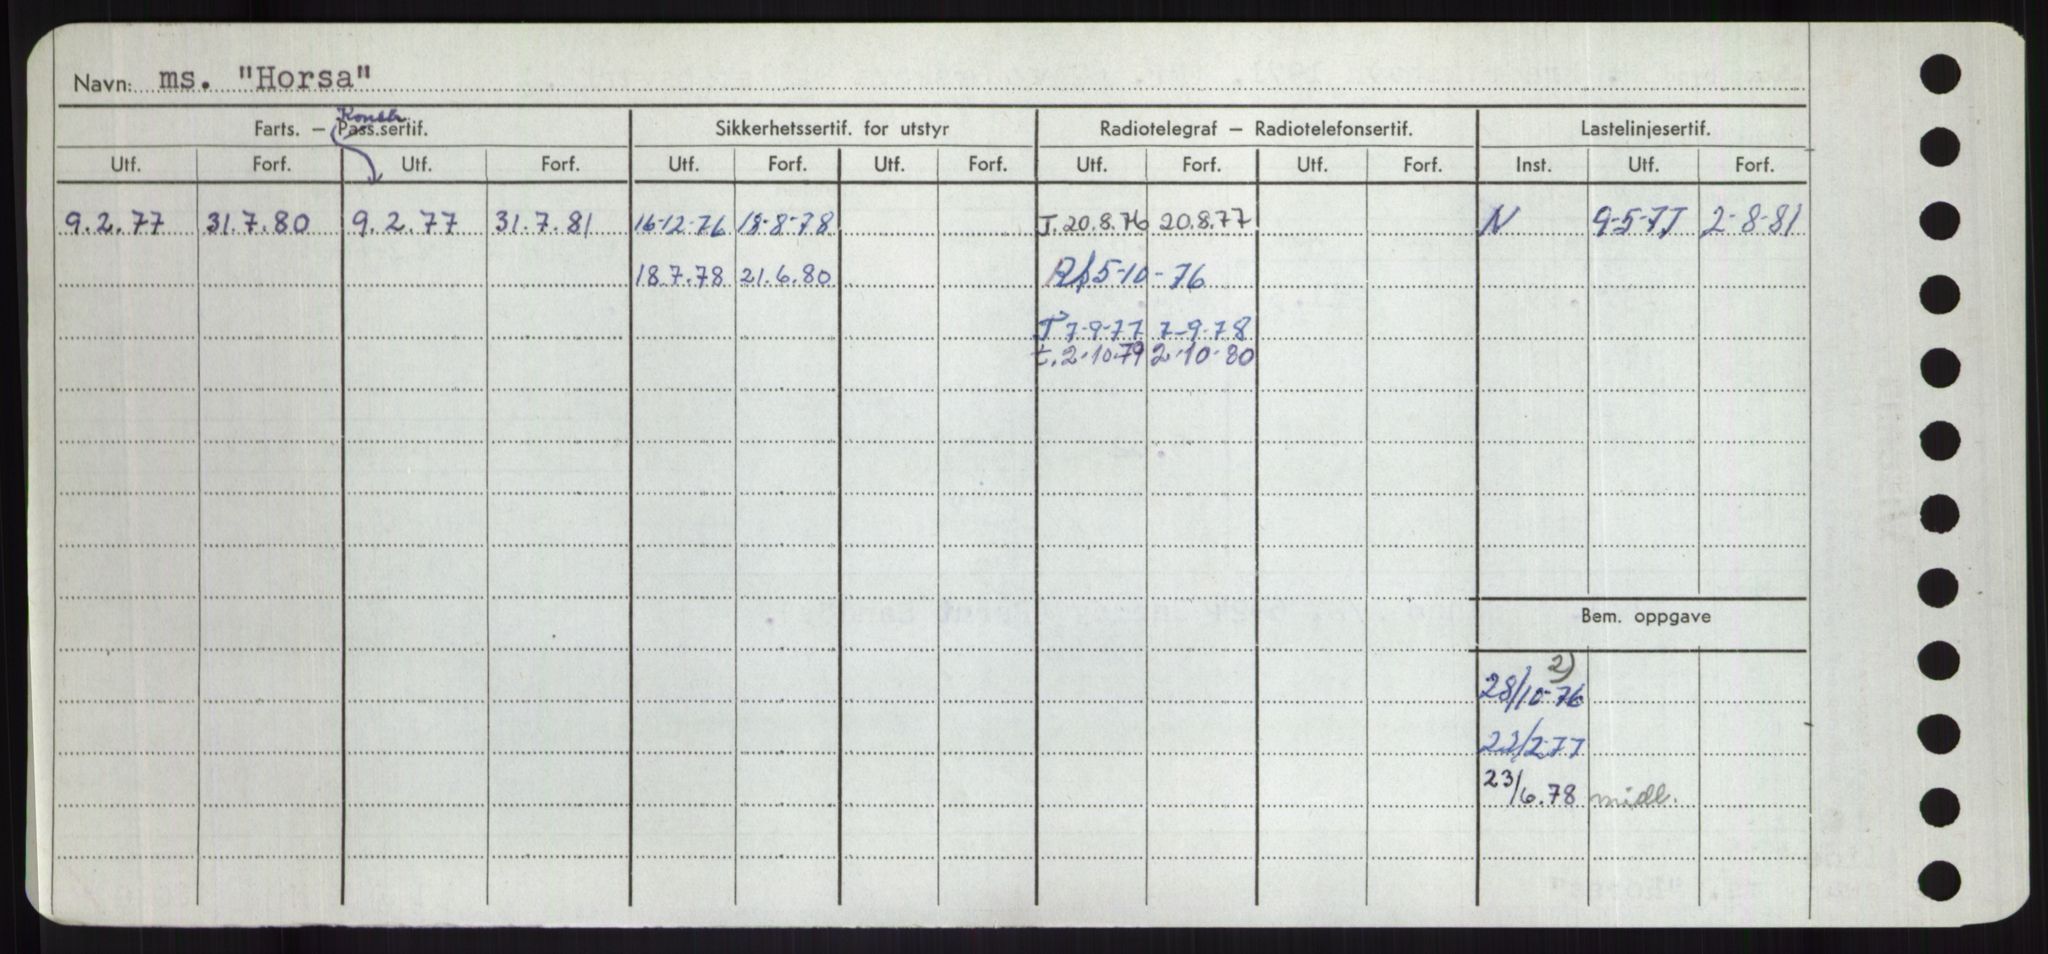 Navn: ms. "Horsa"
Konstr.
Farts. – Pass.sertif. Sikkerhetssertif. for utstyr Radiotelegraf – Radiotelefonsertif. Lastelinjesertif.
Utf. Forf. Utf. Forf. Utf. Forf. Utf. Forf. Utf. Forf. Utf. Forf. Inst. Utf. Forf.
9.2.77 31.7.80 9.2.77 31.7.81 16-12-76 18-8-78 T. 20.8.76 20.8.77 N 9-5-77 2-8-81
18.7.78 21.6.80 5-10-76
T 7-9-77 7-9-78
t. 2-10-79 2-10-80
Bem. oppgave
2)
28/10-76
22/2-77
23/6.78 midl.